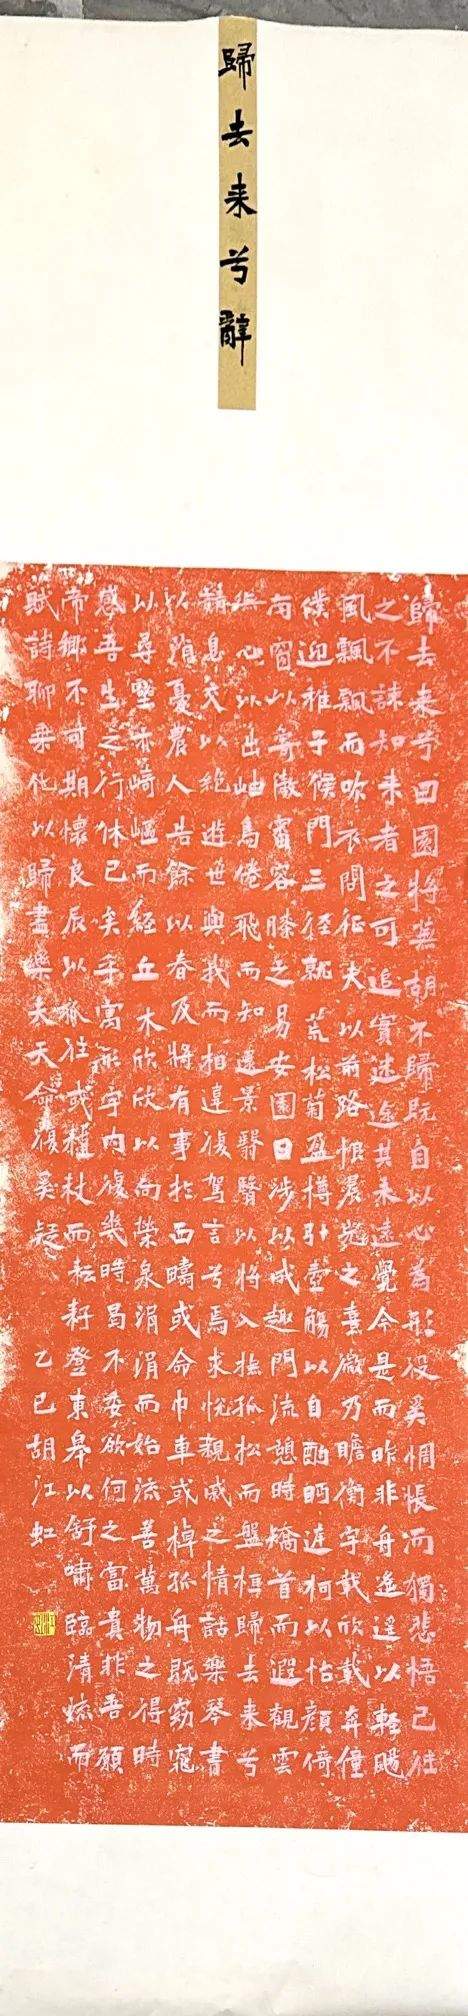 歸去来兮辭
歸去来兮田園將蕪胡不歸既自以心為形役奚惆悵而獨悲悟已往
之不諫知来者之可追實迷途其未遠覺今是而昨非舟遥遥以輕颺
風飄飄而吹衣問征夫以前路恨晨光之熹微乃瞻衡宇載欣載奔僮
僕迎稚子候門三徑就荒松菊盈樽引壺觴以自酌眄庭柯以怡顔倚
南窗以寄傲審容膝之易安園日涉以成趣門流憩時矯首而遐觀雲
無心以出岫鳥倦飛而知還景翳翳以將入撫孤松而盤桓歸去来兮
請息交以絶遊世與我而相違復駕言兮焉求悦親戚之情話樂琴書
以消憂農人告餘以春及將有事於西疇或命巾車或棹孤舟既窈窕
以尋壑亦崎嶇而經丘木欣欣以向榮泉涓涓而始流善萬物之得時
感吾生之行休已矣乎寓形宇內復幾時曷不委欲何之富貴非吾願
帝鄉不可期懷良辰以孤往或植杖而耘耔登東皋以舒嘯臨清流而
賦詩聊乘化以歸盡樂夫天命復奚疑 乙巳胡江虹